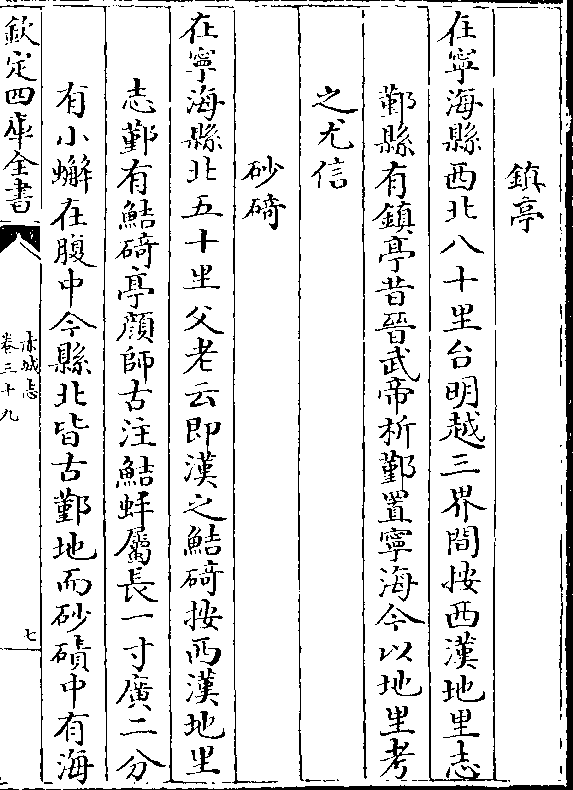 鎮亭
在寧海縣西北八十里台明越三界間按西漢地里志
鄞縣有鎮亭昔晉武帝析鄞置寧海今以地里考
之尤信
砂碕
在寧海縣北五十里父老云即漢之鮚碕按西漢地里
志鄞有鮚碕亭顔師古注鮚蚌屬長一寸廣二分
有小蠏在腹中今縣北皆古鄞地而砂磧中有海
欽定四庫全書
赤城志
卷三十九
七